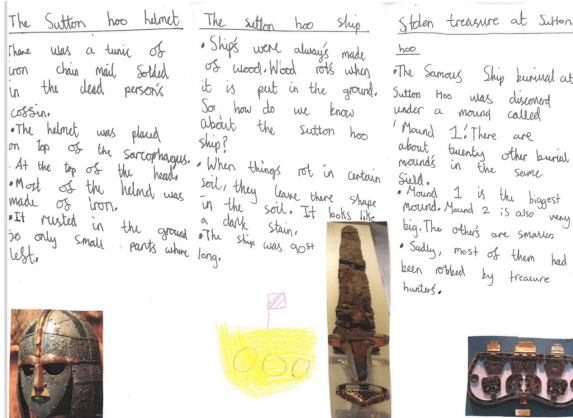 The Sutton hoo helmet
There was a tunic of
iron chain mail folded
in the dead person's
coffin.
• The helmet was placed
on top of the sarcophagus.
. At the top of the head.
• Most of the helmet was
made of iron.
• It rusted in the ground
so only small parts where
left.
The sutton hoo ship
• Ships were always made
of wood. Wood rots when
it is put in the ground.
So how do we know
about the Sutton hoo
ship?
• When things rot in certain
soil, they leave there shape
in the soil. It looks like
a dark stain.
• The ship was 90ft
long.
Stolen treasure at Sutton
hoo
• The famous Ship burival at
Sutton Hoo was discoverd
under a mound called
'Mound 1'. There are
about twenty other burial
mounds in the same
field.
• Mound 1 is the biggest
mound. Mound 2 is also very
big. The others are smaller
• Sadly, most of them had
been robbed by treasure
hunters.